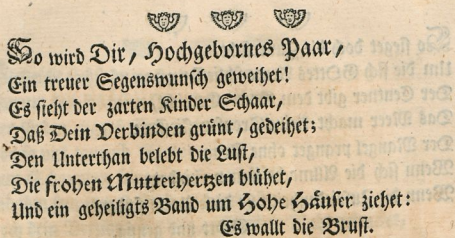 So wird Dir, Hochgebornes Paar,
Ein treuer Segenswunsch geweihet!
Es sieht der zarten Kinder Schaar,
Daß Dein Verbinden grünt, gedeihet;
Den Unterthan belebt die Lust,
Die frohen Mutterhertzen blühet,
Und ein geheiligts Band um Hohe Häuser ziehet:
Es wallt die Brust.